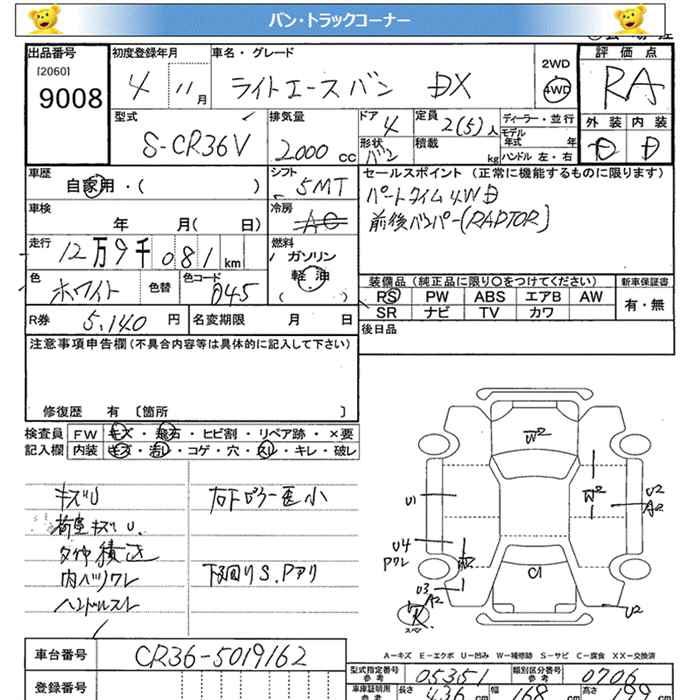 バン・トラックコーナー
出品番号
[2060]
9008
初度登録年月
4 11月
車名・グレード
ライトエースバン DX
2WD
4WD
評価点
RA
外装 内装
D D
型式
S-CR36V
排気量
2000 cc
ドア
4
形状
バン
定員
2(5)人
積載
kg
ディーラー・並行
モデル年式 年
ハンドル 左・右
車歴
自家用・( )
シフト
5MT
車検
年 月( 日)
冷房
AC
セールスポイント (正常に機能するものに限ります)
パートタイム4WD
前後バンパー(RAPTOR)
走行
12万9千081km
燃料
ガソリン
軽油
( )
色
ホワイト
色替
色コード
045
装備品(純正品に限り〇をつけてください)
新車保証書
RS PW ABS エアB AW
SR ナビ TV カワ
有・無
R券 5,140 円
名変期限 月 日
後日品
注意事項申告欄(不具合内容等は具体的に記入して下さい)
修復歴 有 〔箇所 〕
検査員記入欄
FW キズ・飛石・ヒビ割・リペア跡・×要
内装 キズ・汚レ・コゲ・穴・スレ・キレ・破レ
キズU
荷室キズU.
内ヘリワレ
ハンドルスレ
下回りS.Pアリ
W2
U1
W2
U2
A2
U4
Pワレ
W2
C1
U3
A2
スペア
U2
A-キズ E-エクボ U-凹み W-補修跡 S-サビ C-腐食 XX-交換済
車台番号
CR36-5019162
登録番号
型式指定番号
参考
05351
類別区分番号
参考
0706
車庫証明用
参考
長さ 436 cm
幅 168 cm
高さ 199 cm